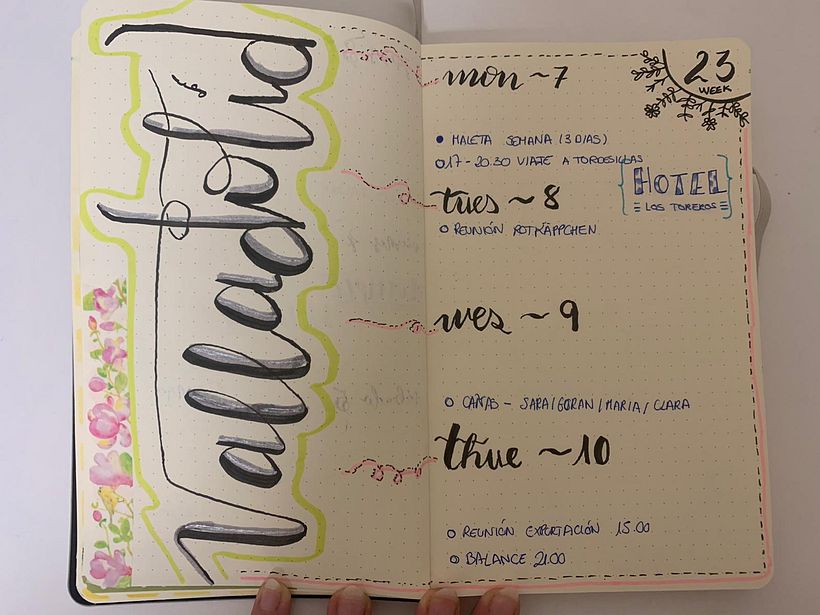 Valladolid
mon ~ 7
23
WEEK
MALETA SEMANA (3 DIAS)
17 - 20.30 VIAJE A TORDESILLAS
HOTEL
LOS TOREROS
tues ~ 8
REUNIÓN ROTKÄPPCHEN
wes ~ 9
CARTAS - SARA/GORAN/MARIA/CLARA
thue ~ 10
REUNIÓN EXPORTACIÓN 15.00
BALANCE 21.00